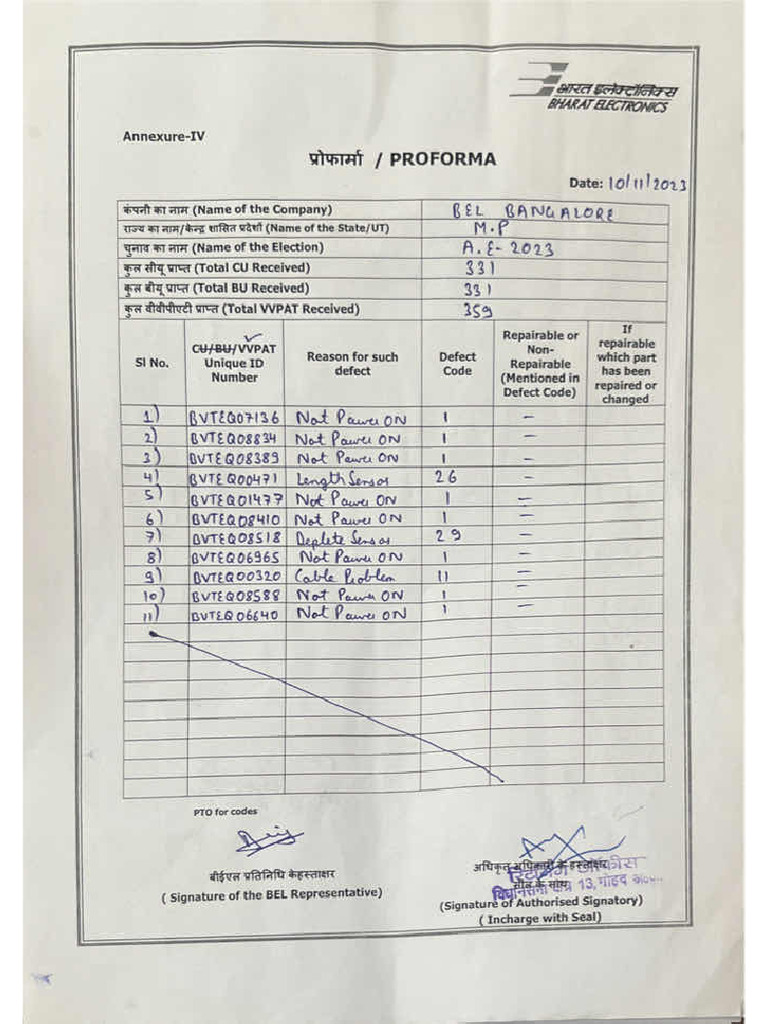 भारत इलेक्ट्रॉनिक्स
BHARAT ELECTRONICS
Annexure-IV
प्रोफार्मा / PROFORMA
Date: 10/11/2023
कंपनी का नाम (Name of the Company) BEL BANGALORE
राज्य का नाम/केन्द्र शासित प्रदेशों (Name of the State/UT) M.P
चुनाव का नाम (Name of the Election) A.E-2023
कुल सीयू प्राप्त (Total CU Received) 331
कुल बीयू प्राप्त (Total BU Received) 331
कुल वीवीपीएटी प्राप्त (Total VVPAT Received) 359
Sl No. CU/BU/VVPAT Unique ID Number Reason for such defect Defect Code Repairable or Non-Repairable (Mentioned in Defect Code) If repairable which part has been repaired or changed
1) BVTEQ07136 Not Power ON 1 –
2) BVTEQ08834 Not Power ON 1 –
3) BVTEQ08389 Not Power ON 1 –
4) BVTEQ00471 Length Sensor 26 –
5) BVTEQ01477 Not Power ON 1 –
6) BVTEQ08410 Not Power ON 1 –
7) BVTEQ08518 Deplete Sensor 29 –
8) BVTEQ06965 Not Power ON 1 –
9) BVTEQ00320 Cable Problem 11 –
10) BVTEQ08588 Not Power ON 1 –
11) BVTEQ06640 Not Power ON 1 –
PTO for codes
बीईएल प्रतिनिधि केहस्ताक्षर
( Signature of the BEL Representative)
अधिकृत अधिकारी के हस्ताक्षर
सील के साथ
विधानसभा क्षेत्र 13, गोहद
(Signature of Authorised Signatory)
( Incharge with Seal)